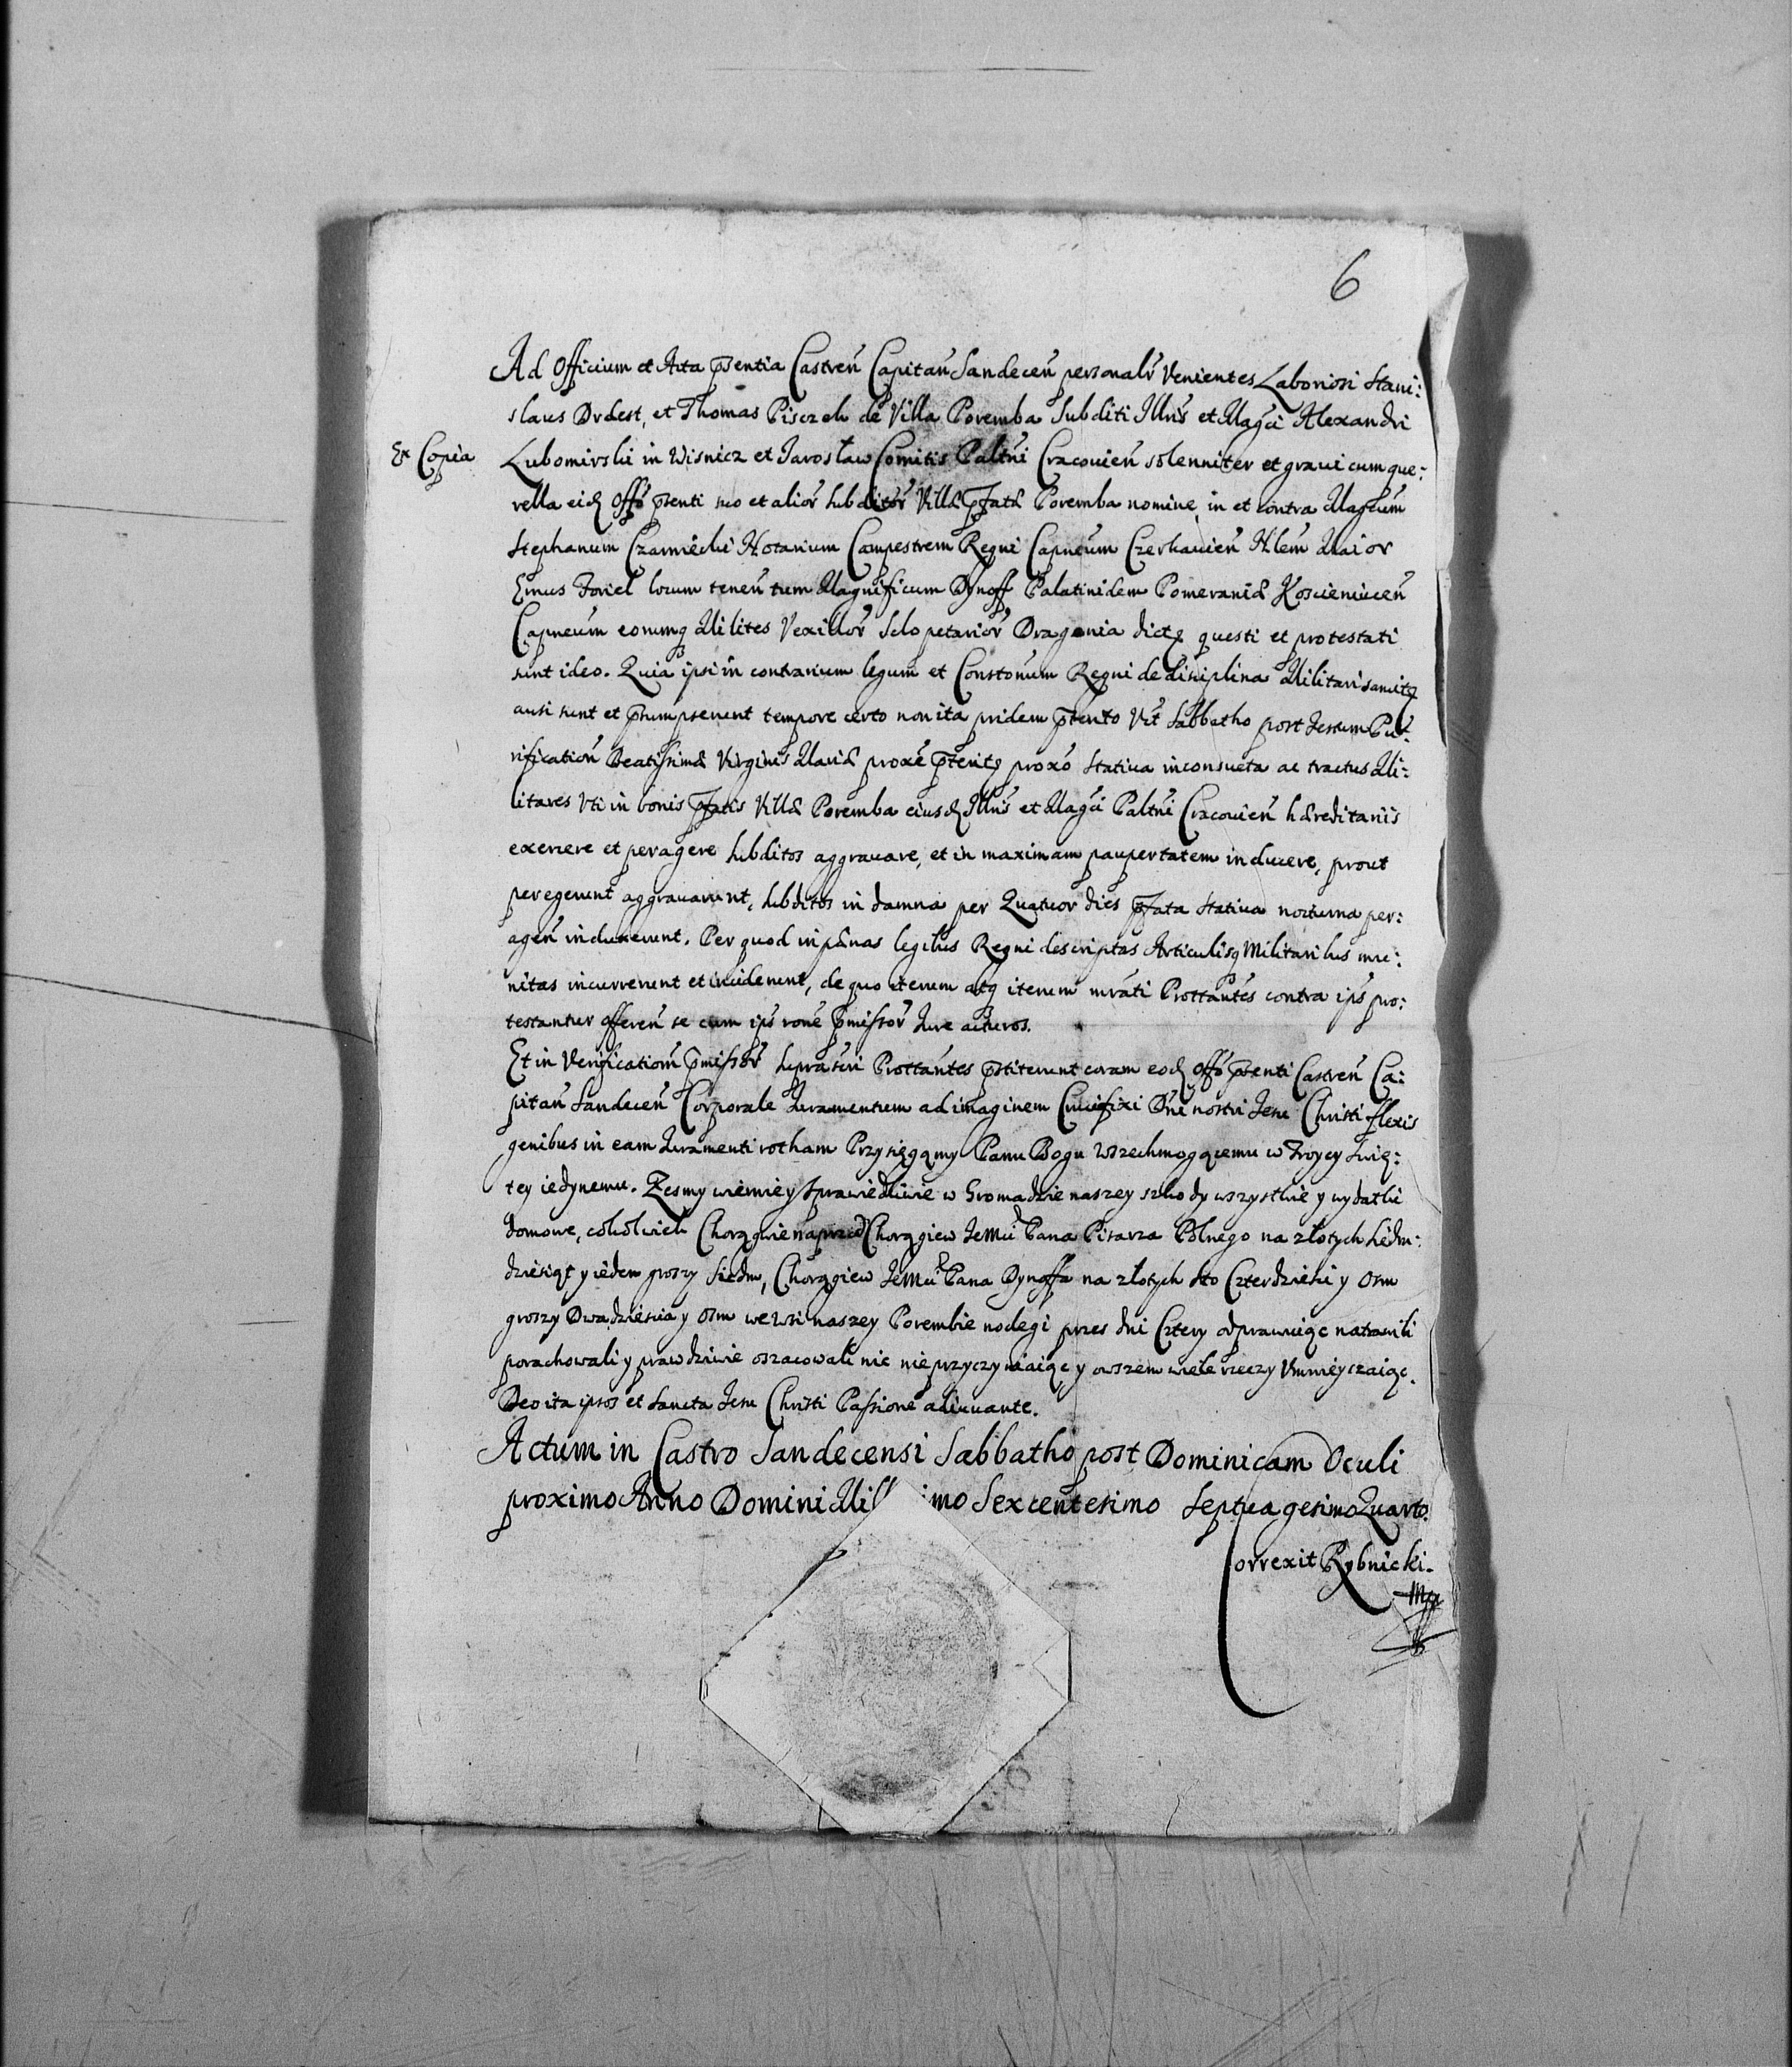 6
Ad Officium et Acta p̄sentia Castreñ Capitañ Sandeceñ personalr̄ Venientes Laboriosi Stani:
slaus Drdest, et Thomas Piszczek de Villa Poremba Subditi Illris et Magci Alexandri
Ex Copia
Lubomirski in Wisnicz et Jarosław Comitis Paltni Cracouieñ solenniter et graui cum que:
rella eid Offo p̄senti suo et alior subditor Villæ p̄fatæ Poremba nomine, in et contra Magcum
Stephanum Czarniecki Notarium Campestrem Regni Capneum
Locum teneñ tum Magnificum Dynoff Palatinidem Pomeraniæ Koscieniceñ
Capneum eorumq Milites Vexillor Sclopetarior Dragonia dictæ questi et protestati
sunt ideo. Quia ipsi in contrarium legum et Constonum Regni de disciplina Militari sancitæ
ausi sunt et p̄sumpserunt tempore certo non ita pridem p̄terito Vt Sabbatho post Festum Pu:
rification Beatissimæ Virginis Mariæ proxe p̄teritæ proxo Statiua inconsueta ac tractus Mi:
litares Vti in bonis p̄fatis Villæ Poremba eiusd Illris et Magci Paltni Cracouieñ hæreditariis
exercere et peragere subditos aggrauare, et in maximam paupertatem inducere, prout
peregerunt aggrauarunt, subditos in damna per Quatuor dies p̄fata Statiua nocturna per:
ageñ induxerunt. Per quod in pænas legibus Regni descriptas Articulisq Militaribus mu:
nitas incurrerunt et inciderunt, de quo iterum atq iterum nirati Prottantes contra ips pro:
testantur offereñ se cum ips rone p̄missor Jure acturos.
Et in Verification p̄missor supra scri Prottantes p̄stiterunt coram eod Offo p̄senti Castreñ Ca:
pitañ Sandeceñ Corporale Juramentum ad imaginem Crucifixi Dni nostri Jesu Christi flexis
genibus in eam Juramenti rotham Przysięgamy Panu Bogu Wszechmogącemu w Troycy Swię:
tey iedynemu. Zesmy wiernie y Sprawiedliwie w Gromadzie naszey szkody wszystkie y wydatki
domowe, cokolwiek Chorągwie naprzod Chorągiew JeMci Pana Pisarza Polnego na złotych siedm:
dziesiąt y ieden groszy siedm, Chorągiew JeMci Pana Dynoffa na złotych sto Czterdziesci y osm
groszy Dwadziescia y osm we wsi naszey Porembie noclegi przes dni Cztery odprawuiąc natrawili
porachowali y prawdziwie oszacowali nic nie przyczyniaiąc y owszem wiele rzeczy Vmnieyszaiąc.
Deo ita ipsos et Sancta Jesu Christi Passione adiuuante.
Actum in Castro Sandecensi Sabbatho post Dominicam Oculi
proximo Anno Domini Mill imo Sexcentesimo Septuagesimo Quarto.
Correxit Rybnicki.
mp